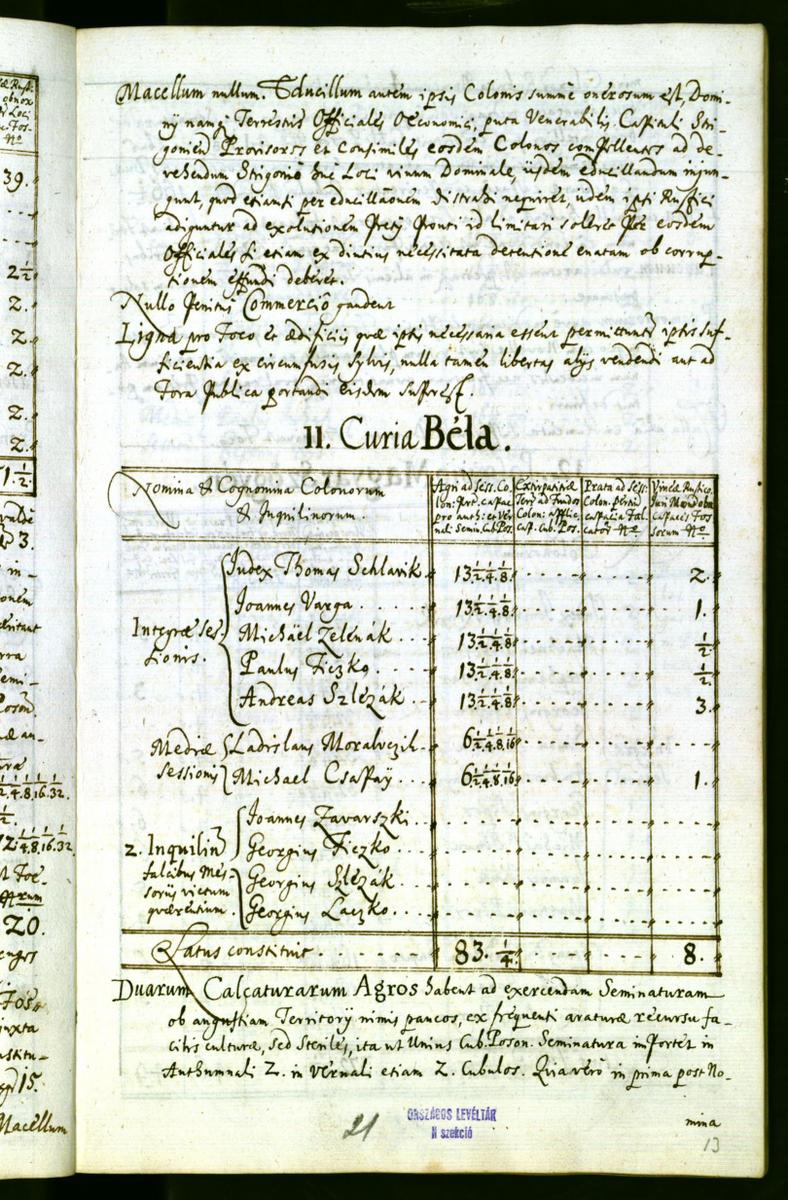 Macellum nullum. Educillum autem ipsis Colonis summè onerosum est, Domi-
nÿ namq Terrestris Officiales Oeconomici, puta Venerabilis Capituli Stri-
gonien Provisores et Consimiles eosdem Colonos compellentes ad de-
vehendum Strigonio huc Loci vinum Dominale, iisdem educillandum injun-
gunt, quod etiamsi per educillaōnem distrahi nequiret, iidem ipsi Rustici
adiguntur ad exolutionem Pretÿ Pronti id limitari solere Per eosdem
Officiales si etiam ex diutius necessitata detentione enatam ob corrup-
tionem effundi deberet.
Nullo Penitus Commercio gaudent
Ligna pro Foco et ædificiis quæ ipsis necessaria essent permittunt ipsis suf-
ficientia ex circumfusis, Sylvis, nulla tamen libertas alÿs vendendi aut ad
Fora Publica portandi eisdem superest.
11. Curia Béla.
Nomina & Cognomina Colonorum
& Inquilinorum.
Agri ad Sess. Co
lon: Pert. capac
pro aut: et Ver
nali Semin. Cub. Pos.
Extirpatitiæ
Terræ ad Fundos
Coloni: applic.
Cap. Cub. Pos.
Prata ad Sess:
Colon. pertin
capacia Fal
catorū Nro
Vineæ Rustico
Juri
capaces Fos
sorum Nro
Integræ Ses
sionis.
Judex Thomas Schlavik 13 1/2.1/4.1/8 2.
Joannes Varga 13 1/2.1/4.1/8 1.
Michäel Zelenák 13 1/2.1/4.1/8 1/2.
Paulus Ficzko 13 1/2.1/4.1/8 1/2.
Andreas Szlezák 13 1/2.1/4.1/8 3.
Mediæ
Sessionis
Ladislaus Moralvczik 6 1/2.1/4.1/8.1/16
Michael Csapaÿ 6 1/2.1/4.1/8.1/16 1.
2. Inquilin
falcibus Mes
soriis victum
quærentium.
Joannes Zavarszki
Georgius Ficzko
Georgius Szlezák
Georgius Laczko
Latus constituit 83. 1/4 8.
Duarum Calcaturarum Agros habent ad exercendam Seminaturam
ob angustiam Territorÿ nimis paucos, ex frequenti araturæ recursu fa-
cilis culturæ, sed Steriles, ita ut Unius Cub. Poson. Seminatura importet in
Authumnali 2. in vernali etiam 2. Cubulos. Quia verò in prima post No-
mina
21
ORSZÁGOS LEVÉLTÁR
N szekció
13
39.
2 1/2
2.
2.
2.
2.
2.
1. 1/2.
20.
15.
Macellum